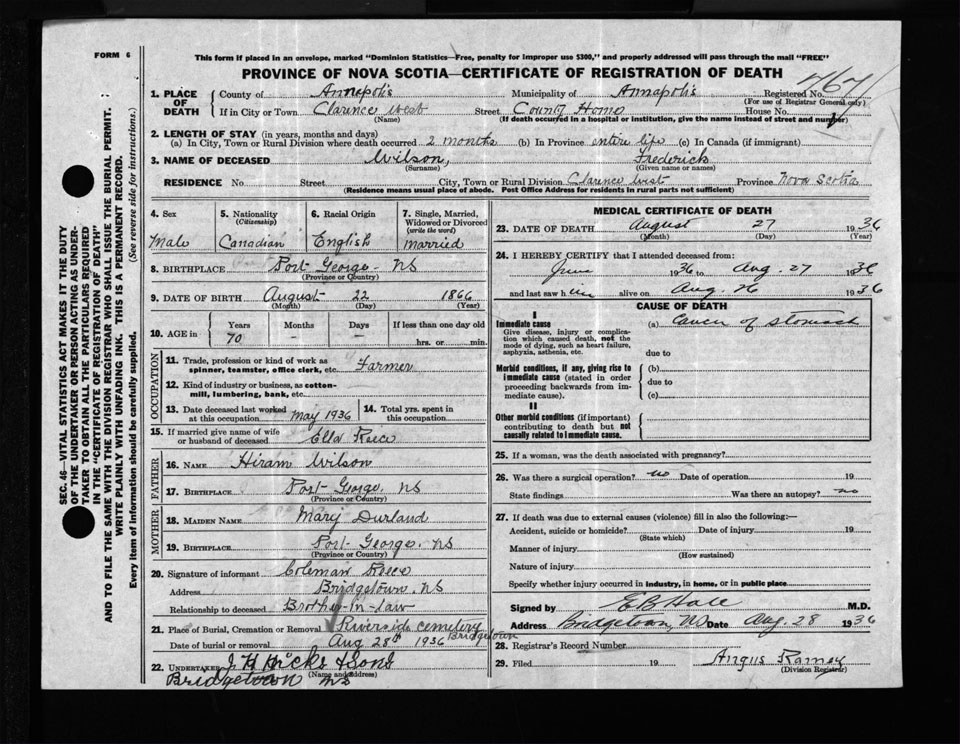 FORM 6
This form if placed in an envelope, marked "Dominion Statistics—Free, penalty for improper use $300," and properly addressed will pass through the mail "FREE"
PROVINCE OF NOVA SCOTIA—CERTIFICATE OF REGISTRATION OF DEATH
1. PLACE OF DEATH County of Annapolis Municipality of Annapolis Registered No.
(For use of Registrar General only)
If in City or Town Clarence West Street County Home House No.
(Name) (If death occurred in a hospital or institution, give the name instead of street and number)
2. LENGTH OF STAY (in years, months and days)
(a) In City, Town or Rural Division where death occurred 2 months (b) In Province entire life (c) In Canada (if immigrant)
3. NAME OF DECEASED Wilson, Frederick
(Surname) (Given name or names)
RESIDENCE No Street City, Town or Rural Division Clarence West Province Nova Scotia
(Residence means usual place of abode. Post Office Address for residents in rural parts not sufficient)
4. Sex Male
5. Nationality (Citizenship) Canadian
6. Racial Origin English
7. Single, Married, Widowed or Divorced (write the word) married
8. BIRTHPLACE Port George NS
(Province or Country)
9. DATE OF BIRTH August 22 1866
(Month) (Day) (Year)
10. AGE in Years Months Days If less than one day old
70 – – hrs. or min.
OCCUPATION
11. Trade, profession or kind of work as spinner, teamster, office clerk, etc. Farmer
12. Kind of industry or business, as cotton-mill, lumbering, bank, etc.
13. Date deceased last worked at this occupation May 1936
14. Total yrs. spent in this occupation
15. If married give name of wife or husband of deceased Ella Reece
FATHER
16. NAME Hiram Wilson
17. BIRTHPLACE Port George, NS
(Province or Country)
MOTHER
18. MAIDEN NAME Mary Durland
19. BIRTHPLACE Port George, NS
(Province or Country)
20. Signature of informant Coleman Reece
Address Bridgetown, NS
Relationship to deceased Brother-in-law
21. Place of Burial, Cremation or Removal Riverside Cemetery Bridgetown
Date of burial or removal Aug 28th 1936
22. UNDERTAKER J H Hicks & Sons
(Name and address)
Bridgetown NS
MEDICAL CERTIFICATE OF DEATH
23. DATE OF DEATH August 27 1936
(Month) (Day) (Year)
24. I HEREBY CERTIFY that I attended deceased from:
June 1936 to Aug. 27 1936
and last saw him alive on Aug. 26 1936
CAUSE OF DEATH
I
Immediate cause
Give disease, injury or complication which caused death, not the mode of dying, such as heart failure, asphyxia, asthenia, etc.
(a) Cancer of stomach
due to
Morbid conditions, if any, giving rise to immediate cause (stated in order proceeding backwards from immediate cause).
(b)
due to
(c)
II
Other morbid conditions (if important) contributing to death but not causally related to immediate cause.
25. If a woman, was the death associated with pregnancy?
26. Was there a surgical operation? no Date of operation 19
State findings Was there an autopsy? no
27. If death was due to external causes (violence) fill in also the following:—
Accident, suicide or homicide? Date of injury 19
(State which)
Manner of injury
(How sustained)
Nature of injury
Specify whether injury occurred in industry, in home, or in public place
Signed by E B Hall M.D.
Address Bridgetown, NS Date Aug. 28 1936
28. Registrar's Record Number
29. Filed 19 Angus Ramey
(Division Registrar)
SEC. 46—VITAL STATISTICS ACT MAKES IT THE DUTY
OF THE UNDERTAKER OR PERSON ACTING AS UNDER-
TAKER TO OBTAIN ALL THE PARTICULARS REQUIRED
IN THE "CERTIFICATE OF REGISTRATION OF DEATH"
AND TO FILE THE SAME WITH THE DIVISION REGISTRAR WHO SHALL ISSUE THE BURIAL PERMIT.
WRITE PLAINLY WITH UNFADING INK. THIS IS A PERMANENT RECORD.
Every item of information should be carefully supplied. (See reverse side for instructions.)